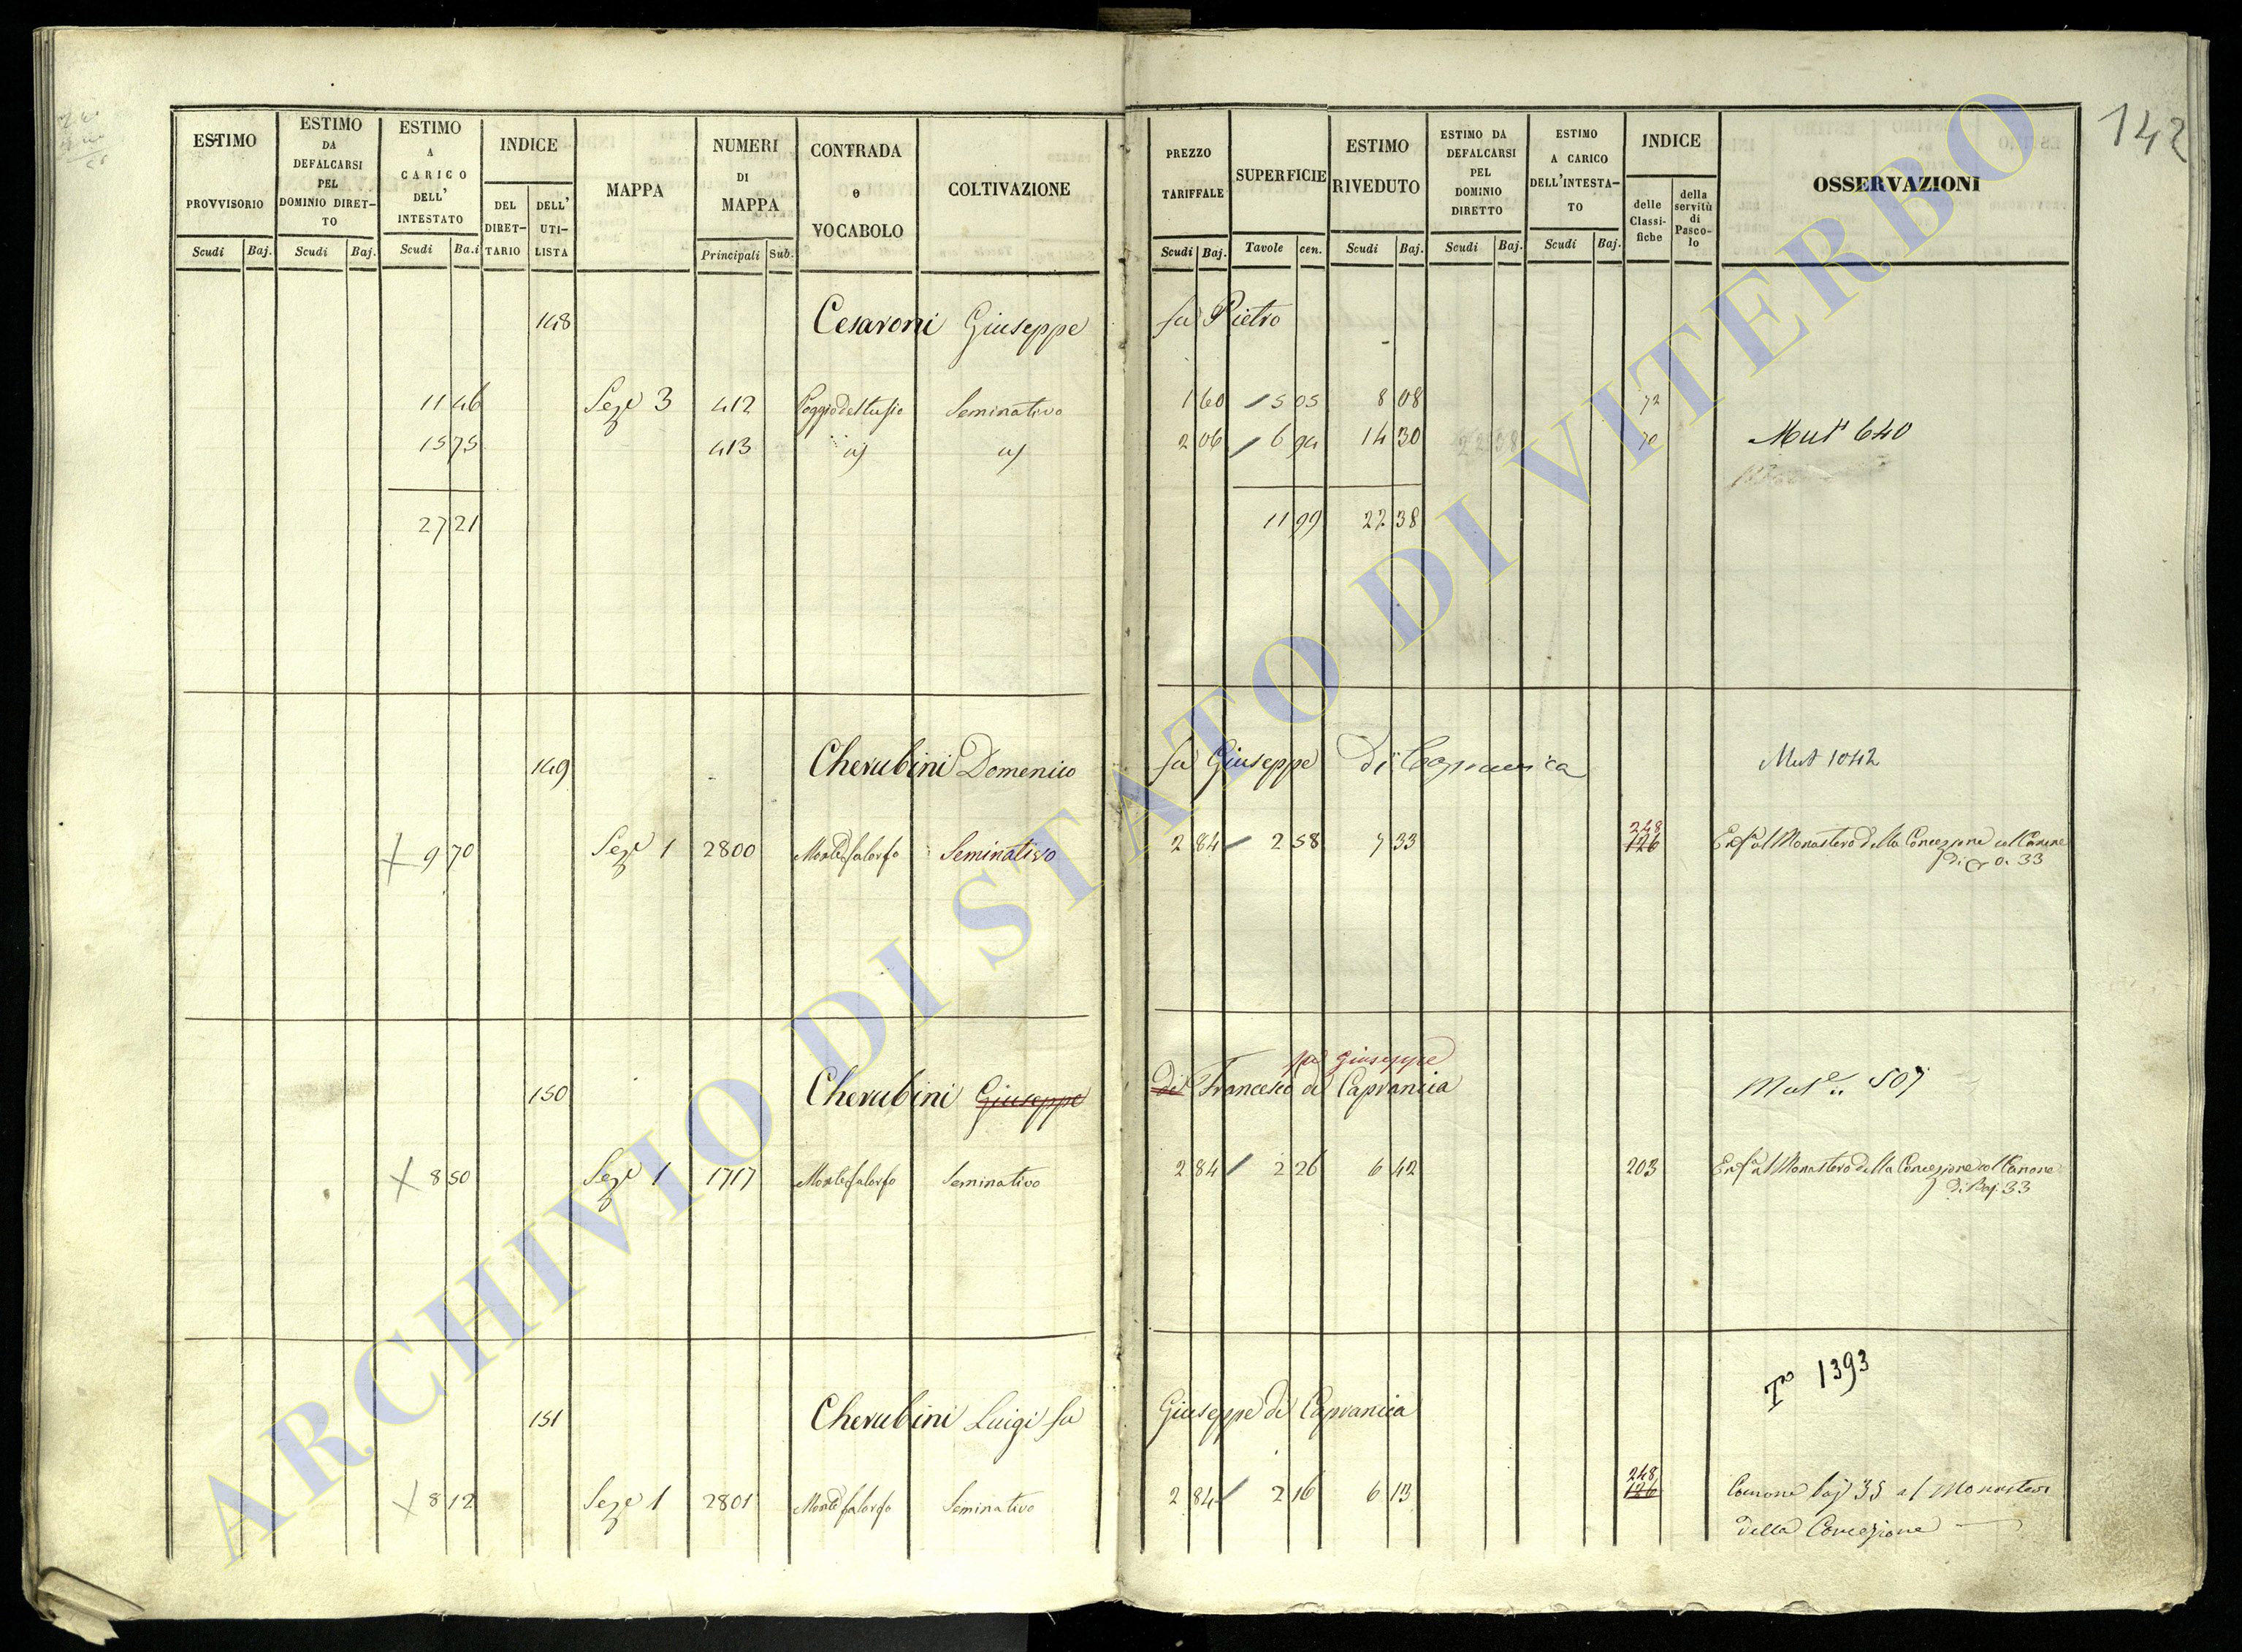 142
ESTIMO PROVVISORIO Scudi Baj.
ESTIMO DA DEFALCARSI PEL DOMINIO DIRET-TO Scudi Baj.
ESTIMO A CARICO DELL' INTESTATO Scudi Ba.i
INDICE DEL DIRET-TARIO DELL' UTI-LISTA
MAPPA
NUMERI DI MAPPA Principali Sub.
CONTRADA o VOCABOLO
COLTIVAZIONE
PREZZO TARIFFALE Scudi Baj.
SUPERFICIE Tavole cen.
ESTIMO RIVEDUTO Scudi Baj.
ESTIMO DA DEFALCARSI PEL DOMINIO DIRETTO Scudi Baj.
ESTIMO A CARICO DELL'INTESTA-TO Scudi Baj.
INDICE delle Classi-fiche della servitù di Pasco-lo
OSSERVAZIONI
148 Cesaroni Giuseppe fu Pietro
11 46 Seze 3 412 Seminativo 1 60 5 05 8 08 72
15 75 413 2 06 6 94 14 30 70 Mut 640
27 21 11 99 22 38
149 Cherubini Domenico fu Giuseppe di Mut 1042
9 70 Seze 1 2800 Seminativo 2 84 2 58 7 33 248 126 Monastero della Concezione col Canone
33
fu Giuseppe
150 Cherubini Giuseppe di Francesco di Capranica 507
8 50 Seze 1 1717 Seminativo 2 84 2 26 6 42 203 Monastero della Concezione col Canone
di Baj. 33
1393
151 Cherubini Luigi fu Giuseppe di Capranica
8 12 Seze 1 2801 Seminativo 2 84 2 16 6 13 248 126 Canone baj 35 al Monastero
della Concezione
ARCHIVIO DI STATO DI VITERBO